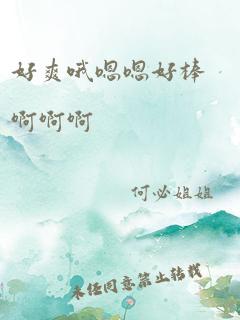 好爽哦嗯嗯好棒
啊啊啊
何必姐姐
未经同意禁止转载